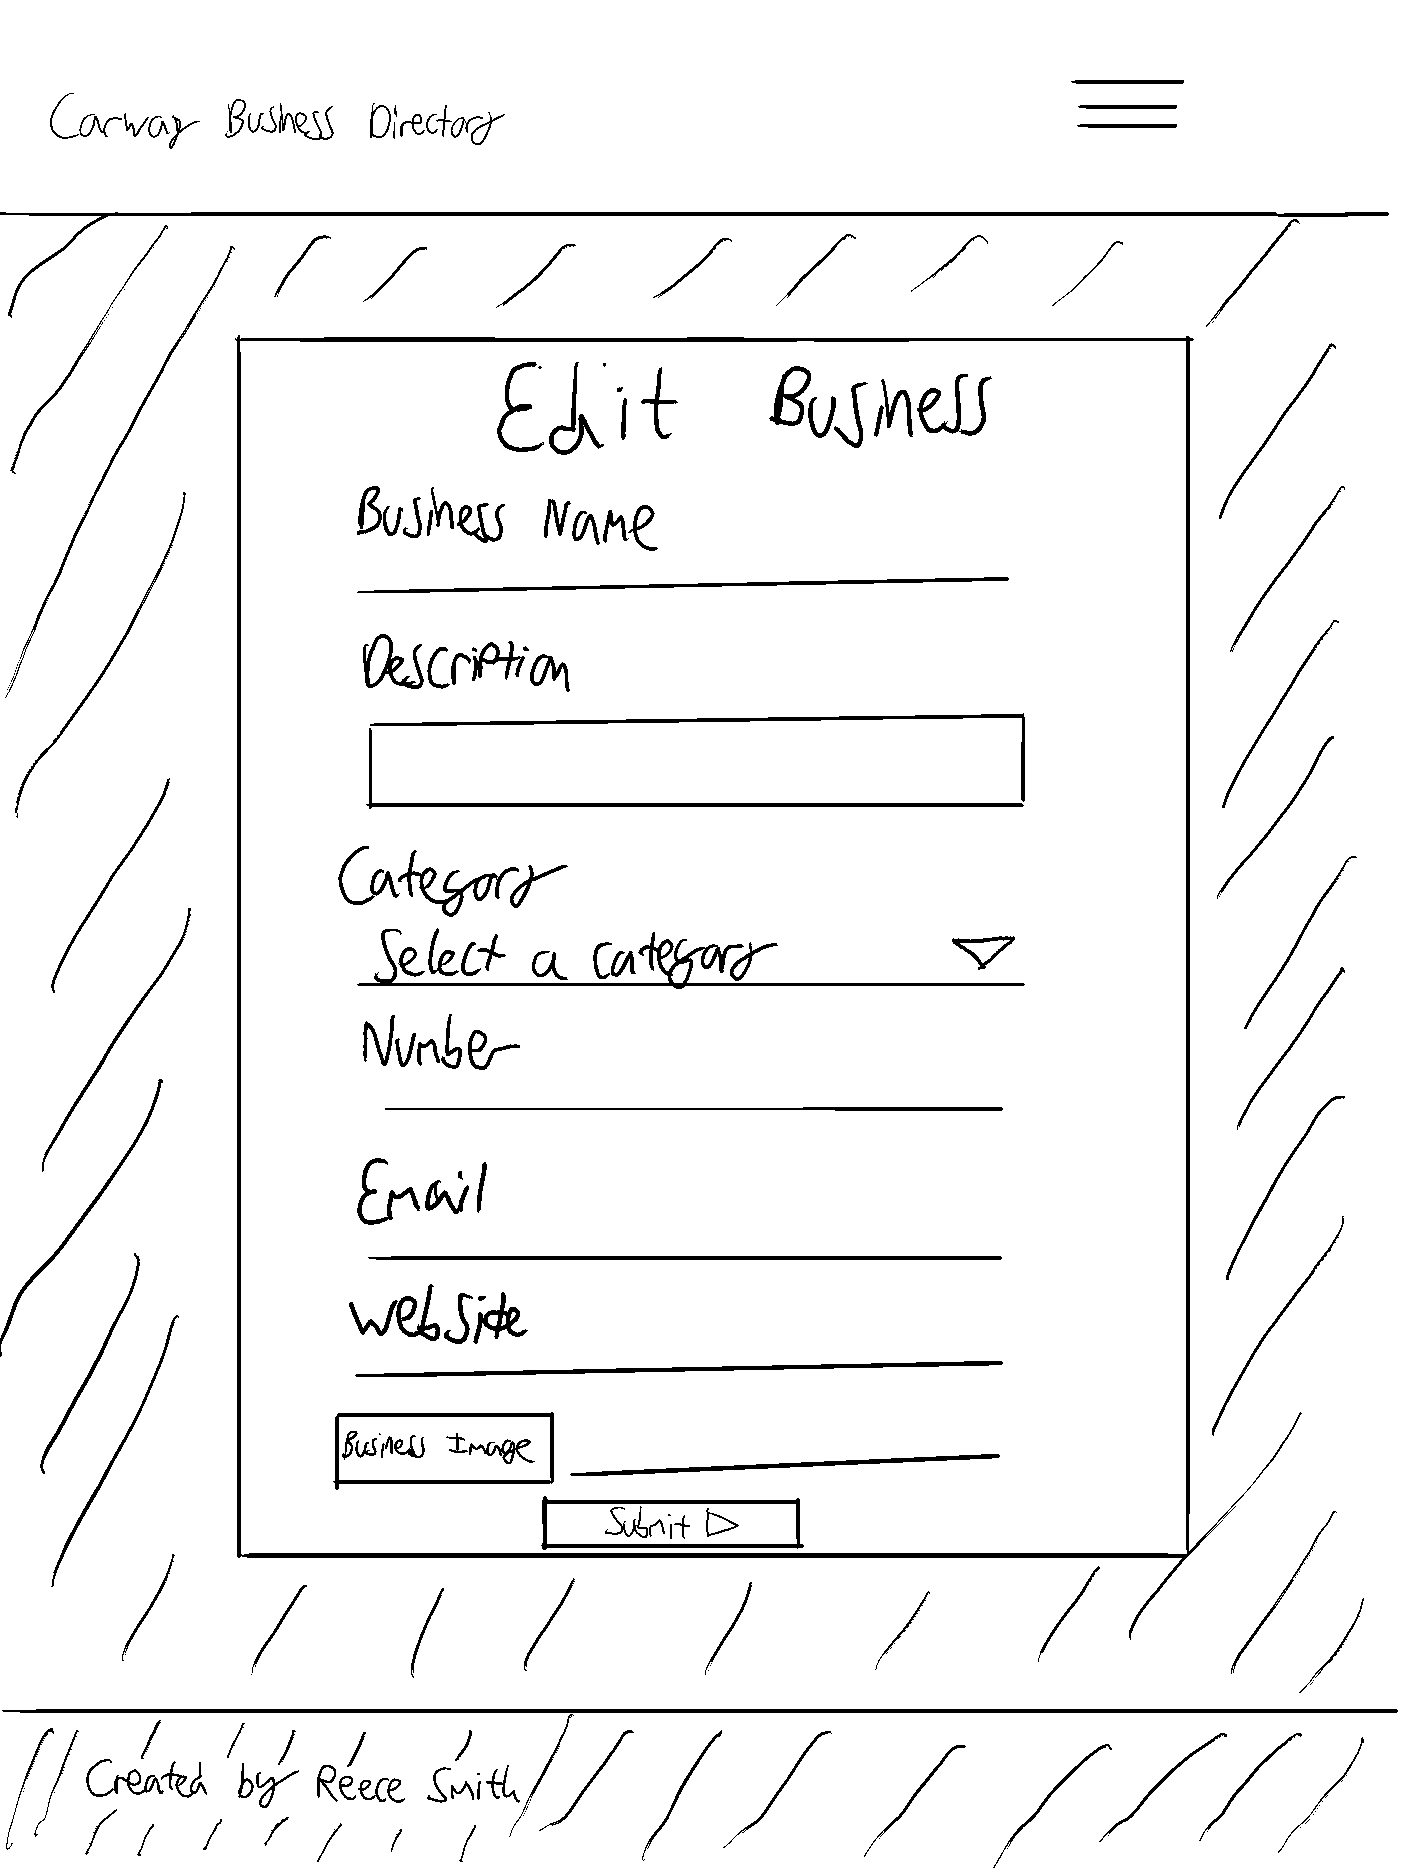 Carway Business Directory
Edit Business
Business Name
Description
Category
Select a category
Number
Email
Website
Business Image
Submit
Created by Reece Smith